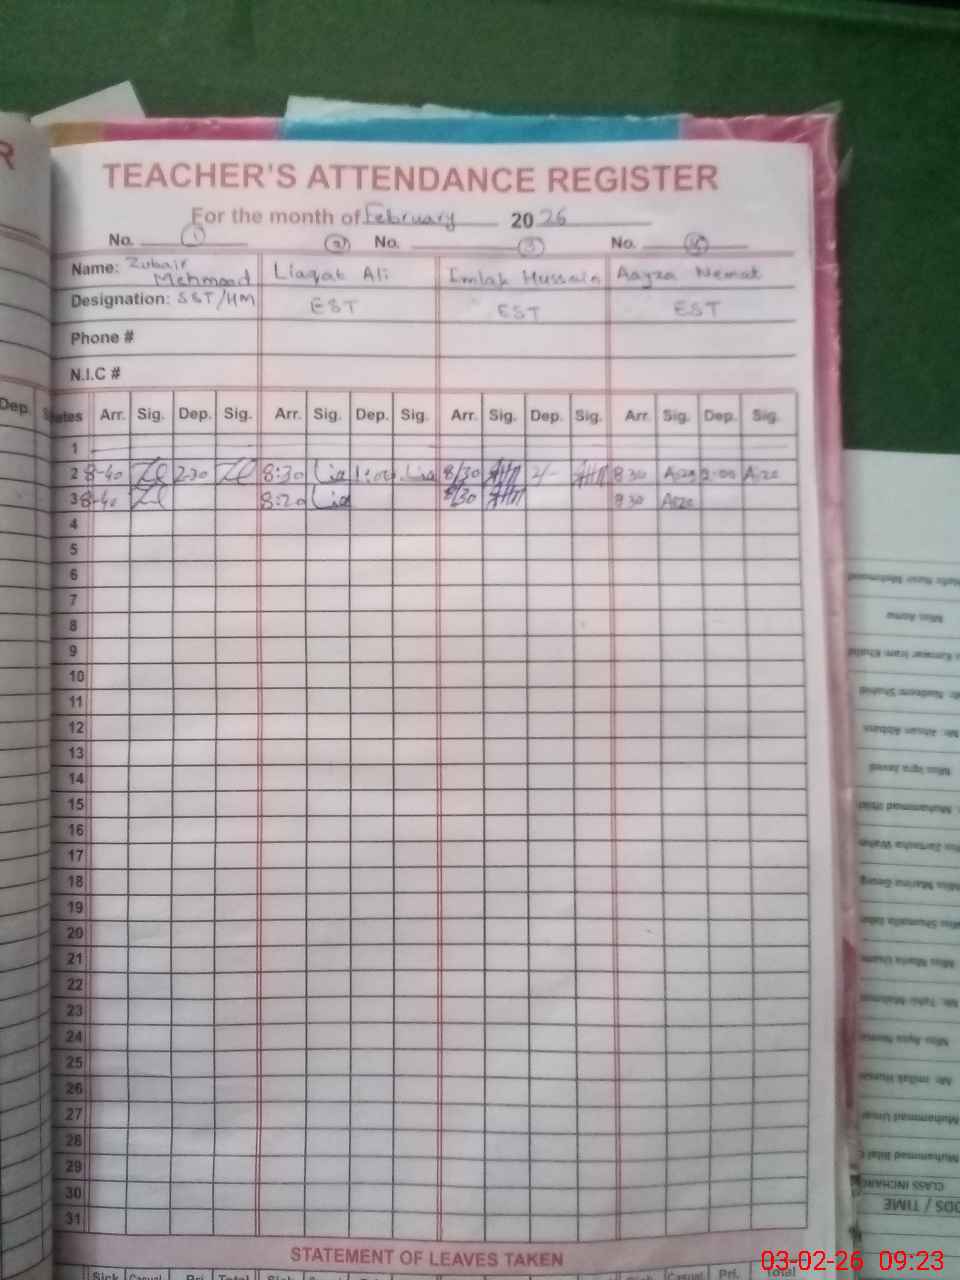 R
TEACHER'S ATTENDANCE REGISTER
For the month of February 2026
No. 1 2 No. 3 No. 4
Name: Zubair Mehmood Liaqat Ali Imlak Hussain Aayza Nemat
Designation: SST/HM EST EST EST
Phone #
N.I.C #
Dep. Arr. Sig. Dep. Sig. Arr. Sig. Dep. Sig. Arr. Sig. Dep. Sig. Arr. Sig. Dep. Sig.
1
2 8-40 2-30 8:30 Lia 1:00 Lia 8/30 2/- 8 30 2:00
3 8-40 8:20 Lia 8/30 8 30
4
5
6
7
8
9
10
11
12
13
14
15
16
17
18
19
20
21
22
23
24
25
26
27
28
29
30
31
STATEMENT OF LEAVES TAKEN
Sick Casual Pri. Total Sick Casual Pri. Total
Miss Asma
Mr. Nadeem Shahid
Mr. Ahsan Abbas
Miss Iqra Javed
CLASS INCHARGE
ODS / TIME
03-02-26 09:23